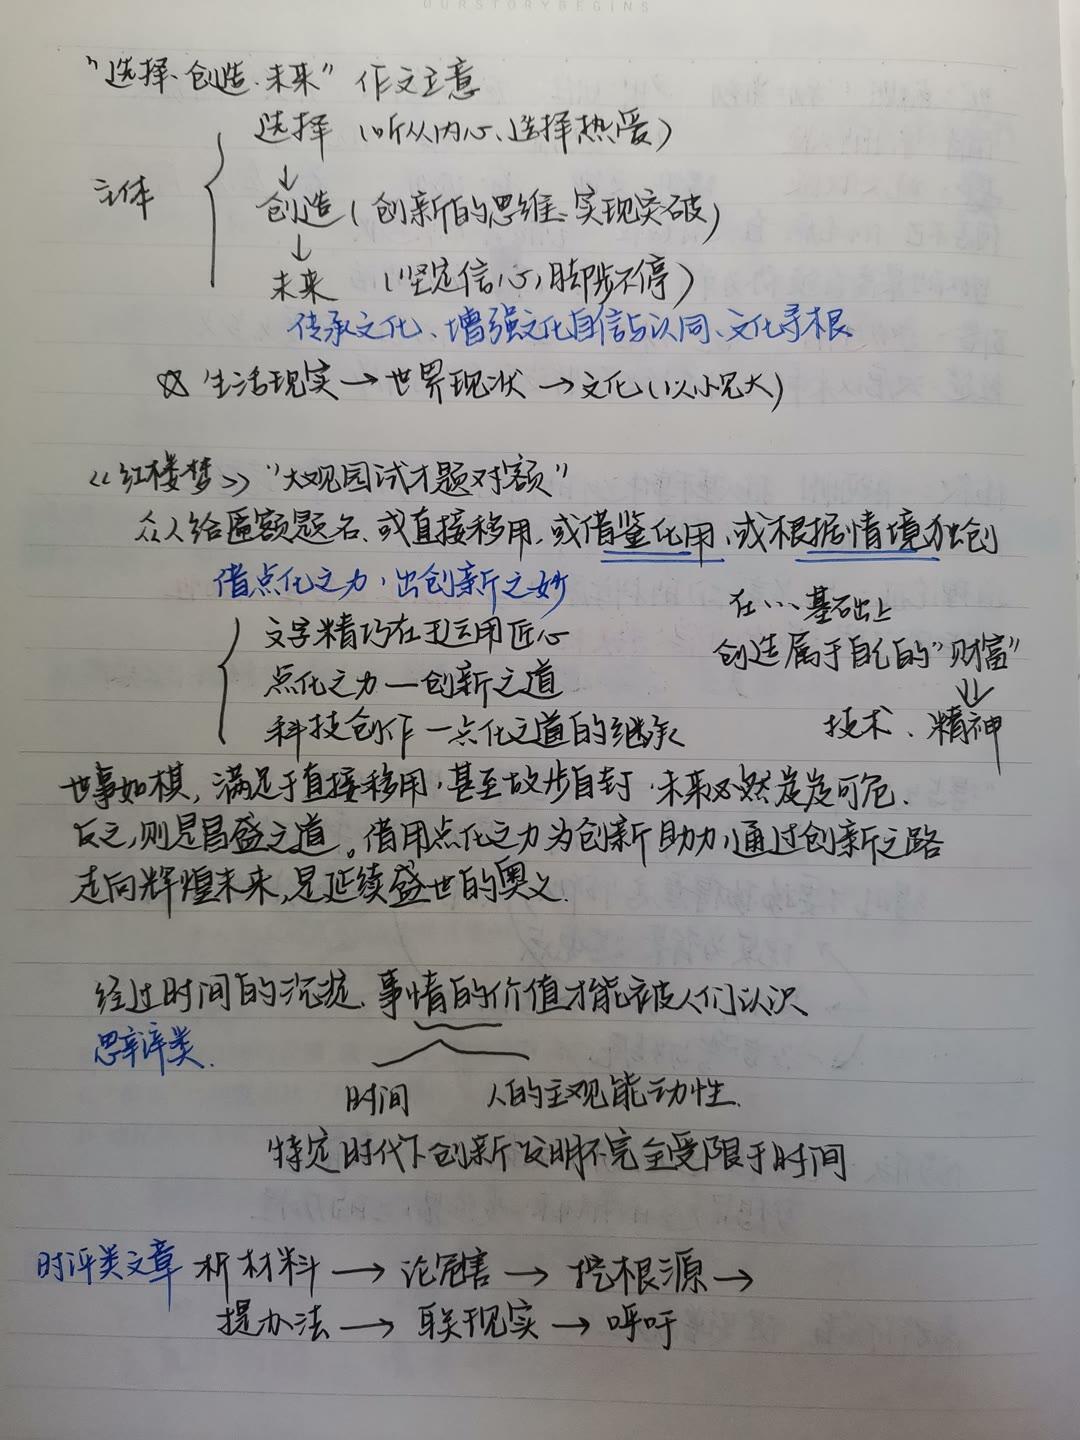 OURSTORYBEGINS
"选择、创造、未来" 作文立意
选择 (听从内心、选择热爱)
↓
主体 创造 (创新的思维、实现突破)
↓
未来 (坚定信心,脚步不停)
传承文化、增强文化自信与认同、文化寻根
☆ 生活现实→世界现状→文化(以小见大)
《红楼梦》"大观园试才题对额"
众人给匾额题名、或直接移用,或借鉴化用,或根据情境独创
借点化之力,出创新之妙
在...基础上
文字精巧在于运用匠心
创造属于自己的"财富"
点化之力—创新之道
⇓
科技创作—点化之道的继承
技术、精神
世事如棋,满足于直接移用,甚至故步自封,未来必然岌岌可危.
反之,则是昌盛之道。借用点化之力为创新助力,通过创新之路
走向辉煌未来,是延续盛世的奥义.
经过时间的沉淀、事情的价值才能被人们认识
思辨类.
时间 人的主观能动性.
特定时代下创新发明不完全受限于时间
时评类文章 析材料→论危害→挖根源→
提办法→联现实→呼吁